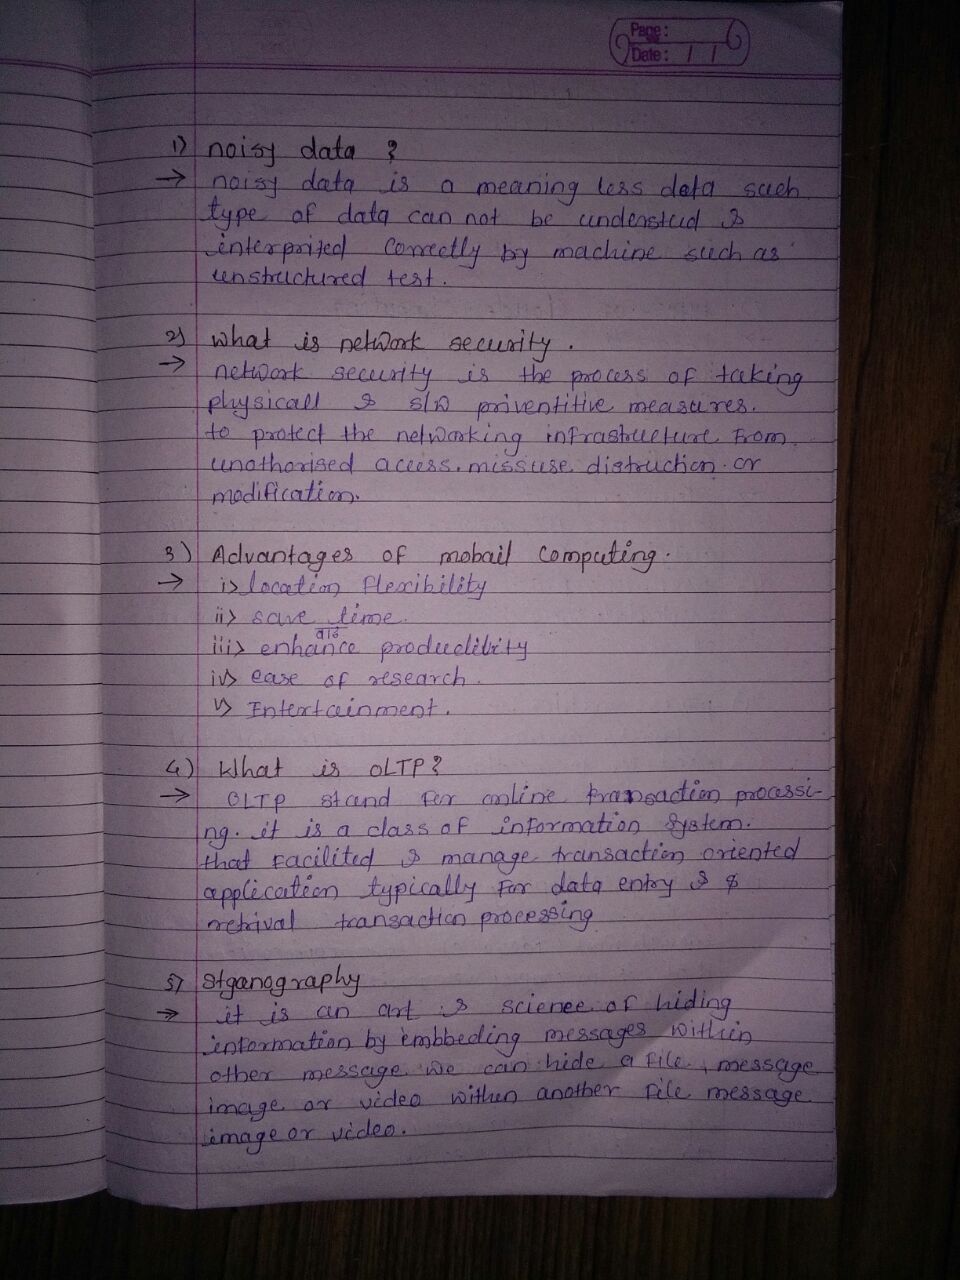 Page:
Date: / /
1) noisy data ?
→ noisy data is a meaning less data such
type of data can not be understud &
interprited correctly by machine such as
unstructured test.
2) what is network security.
→ network security is the process of taking
physicall & s/w priventitive measures.
to protect the networking infrastructure from
unothorised access. missuse. distruction. or
modification.
3) Advantages of mobail computing.
→ i> location flexibility
ii> save time.
वाढ
iii> enhance productivity
iv> ease of research.
v> Entertainment.
4) What is OLTP?
→ OLTP stand for online transaction processi-
ng. it is a class of information system.
that facilited & manage transaction oriented
application typically for data entry & $
retrival transaction processing
5) stganography
→ it is an art & science of hiding
information by embbeding messages within
other message we can hide a file, message
image or video within another file message
image or video.